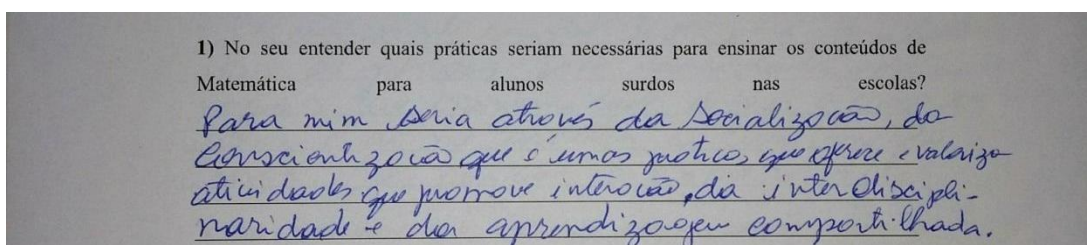 1) No seu entender quais práticas seriam necessárias para ensinar os conteúdos de
Matemática para alunos surdos nas escolas?
Para mim seria através da Socialização, da
Conscientização que é umas prática, que oferece e valoriza
atividades que promove interação, da interdiscipli-
naridade e da aprendizagem compartilhada.